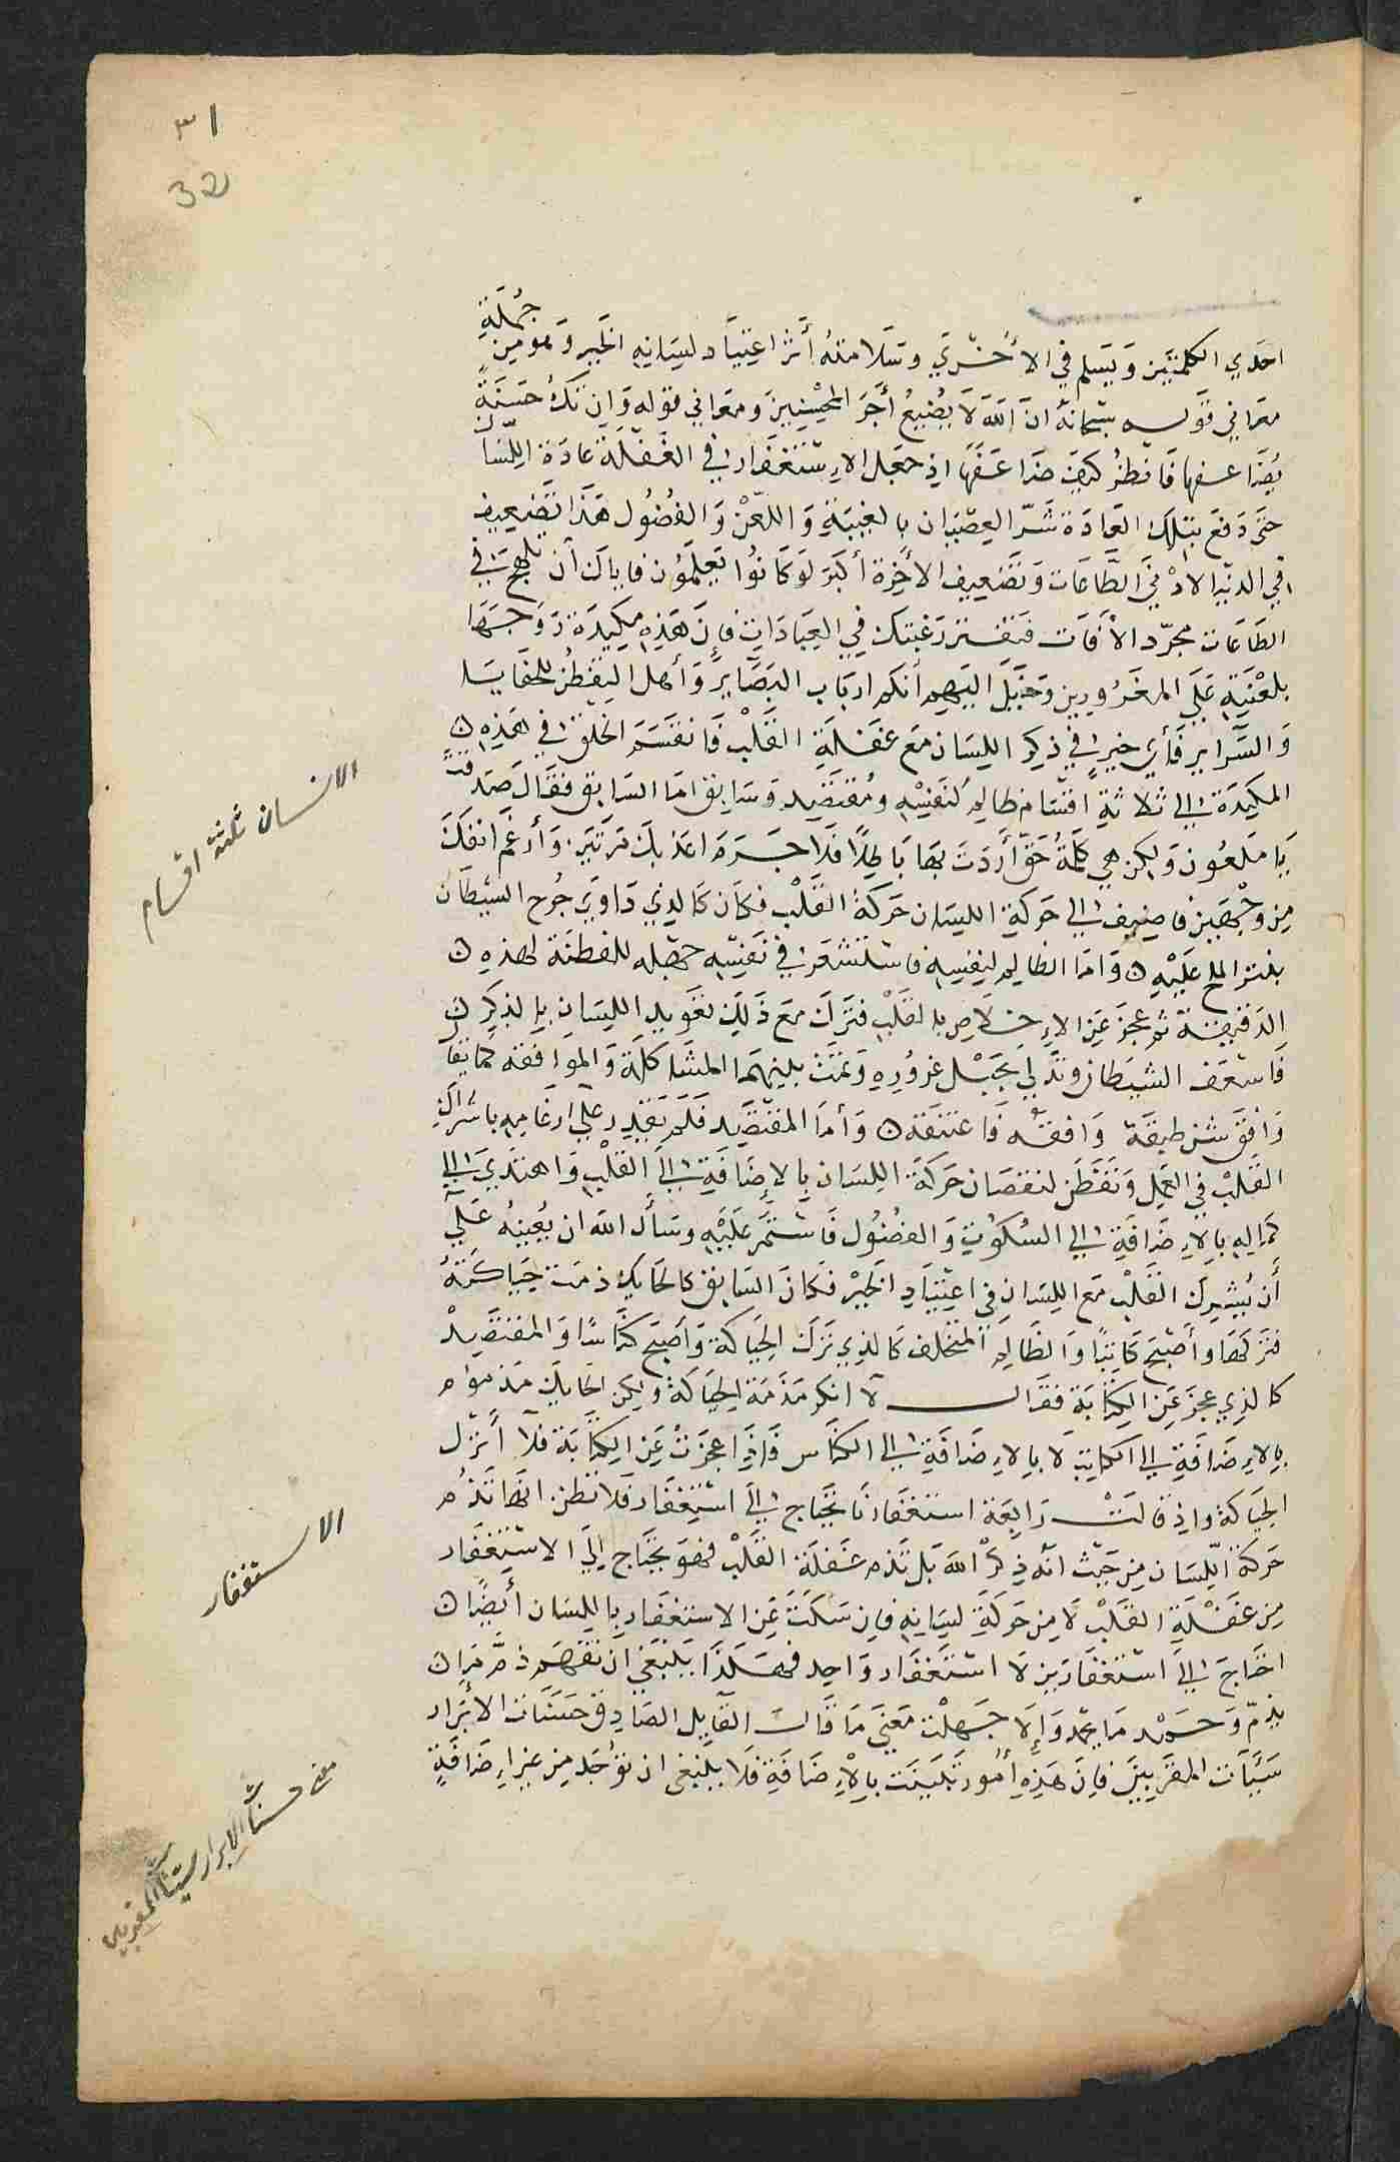 ٣١
32
احدي الكلمتين ويسلم في الأخري وسلامته أثر اعتياد لسانه الخير وهو من جملة
معاني قوله سبحانه ان الله لا يضيع أجر المحسنين ومعاني قوله وان تك حسنة
يضاعفها فانظر كيف ضاعفها اذ جعل الاستغفار في الغفلة عادة اللسان
حتى دفع بتلك العادة شر العصيان بالغيبة واللعن والفضول هذا تضعيف
في الدنيا لأدني الطاعات وتضعيف الاخرة أكبر لو كانوا يعلمون فاياك أن تلمح في
الطاعات مجرد الأفات فتفتر رغبتك في العبادات فإن هذه مكيدة روجها
بلعنته علي المغرورين وخيل اليهم أنكم ارباب البصاير وأهل التفطن للخفايا
والسراير فأي خير في ذكر اللسان مع غفلة القلب فانقسم الخلق في هذه
المكيدة إلي ثلاثة اقسام ظالم لنفسه ومقتصد وسابق اما السابق فقال صدقت
يا ملعون ولكن هي كلمة حق أردت بها باطلا فلا جرم اعذبك مرتين وأرغم انفك
من وجهين فاضيف إلي حركة اللسان حركة القلب فكان كالذي داوي جرح الشيطان
بنثر الملح عليه واما الظالم لنفسه فاستشعر في نفسه جهله للفطنة لهذه
الدقيقة ثم عجز عن الإخلاص بالقلب فترك مع ذلك تعويد اللسان بالذكر
فاسعف الشيطان وتدلي بحبل غروره وتمت بينهما المشاكلة والموافقة كما يقا
وافق شن طبقة وافقه فاعتنقه وأما المقتصد فلم يقدر علي ارغامه باشراك
القلب في العمل وتفطن لنقصان حركة اللسان بالإضافة إلي القلب واهتدي إلي
كماله بالإضافة إلي السكوت والفضول فاستمر عليه وسأل الله ان يعينه علي
أن يشرك القلب مع اللسان في اعتياد الخير فكان السابق كالحايك ذمت حياكته
فتركها وأصبح كاتبا والظالم المتخلف كالذي ترك الحياكة وأصبح كناسا والمقتصد
كالذي عجز عن الكتابة فقال لا انكر مذمة الحياكة ولكن الحايك مذموم
بالإضافة إلي الكاتب لا بالإضافة إلي الكناس فاذا عجزت عن الكتابة فلا أترك
الحياكة واذ قالت رابعة استغفارنا يحتاج إلي استغفار فلا تظن انها تذم
حركة اللسان من حيث انه ذكر الله بل تذم غفلة القلب فهو يحتاج إلي الاستغفار
من غفلة القلب لا من حركة لسانه فان سكت عن الاستغفار باللسان أيضا
احتاج إلي استغفارين لا استغفار واحد فهكذا ينبغي أن تفهم ذم
يذم وحمد ما يحمد وإلا جهلت معني ما قال القايل الصادق حسنات الأبرار
سيئات المقربين فان هذه أمور تثبت بالإضافة فلا ينبغي ان تؤخذ من غير إضافة
الانسان ثلثة اقسام
الاستغفار
حسنات الابرار سيئات المقربين